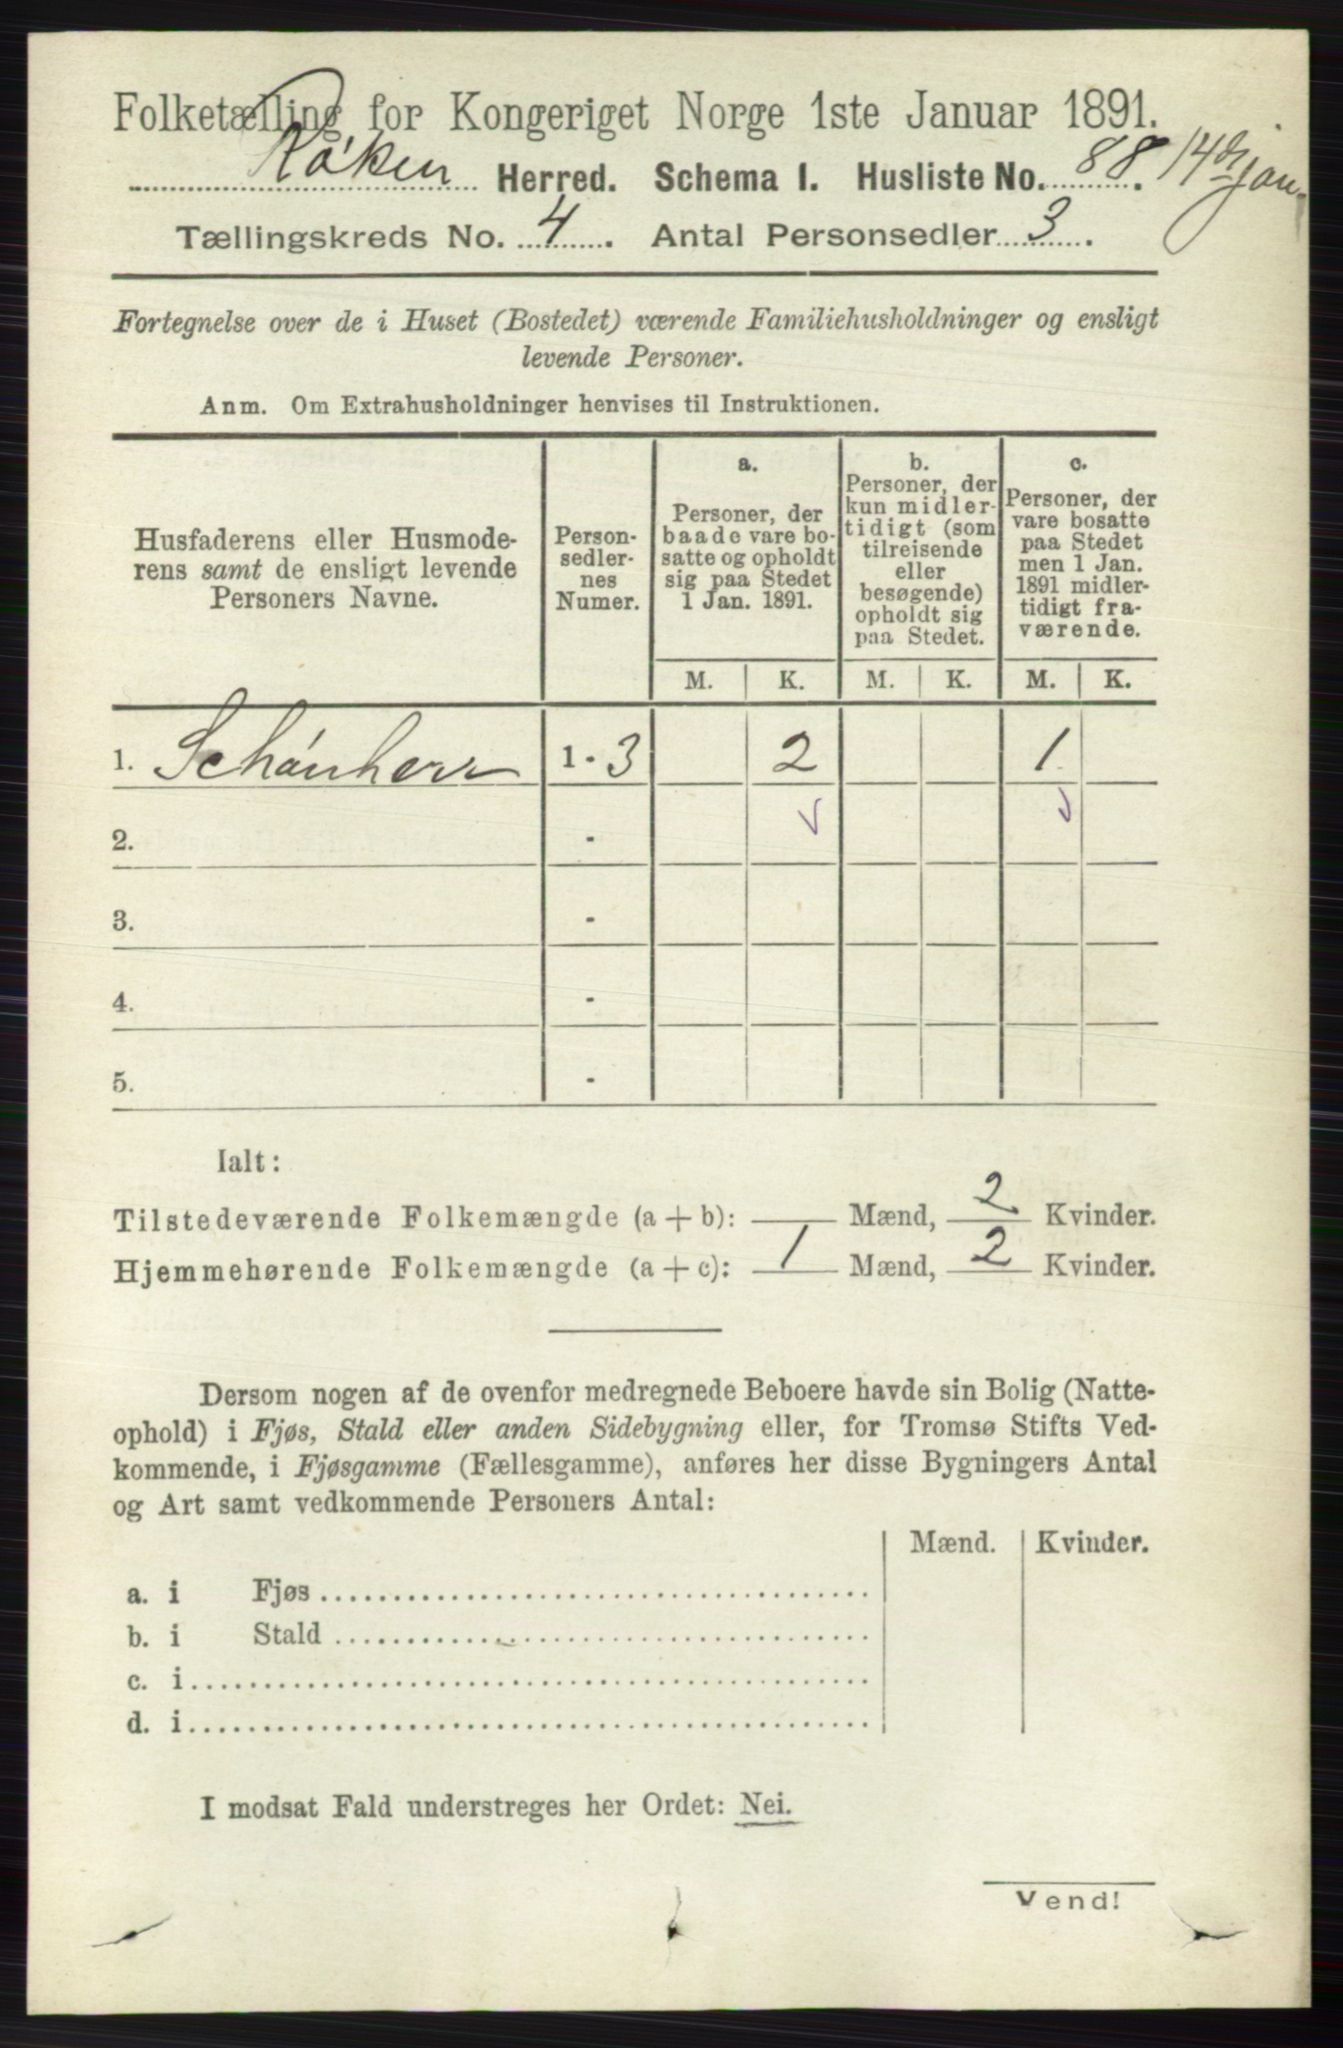 Folketælling for Kongeriget Norge 1ste Januar 1891.
Røken Herred. Schema I. Husliste No. 88. 14de jan.
Tællingskreds No. 4. Antal Personsedler 3.
Fortegnelse over de i Huset (Bostedet) værende Familiehusholdninger og ensligt
levende Personer.
Anm. Om Extrahusholdninger henvises til Instruktionen.
Husfaderens eller Husmode-
rens samt de ensligt levende
Personers Navne.
Person-
sedler-
nes
Numer.
a.
Personer, der
baade vare bo-
satte og opholdt
sig paa Stedet
1 Jan. 1891.
b.
Personer, der
kun midler-
tidigt (som
tilreisende
eller
besøgende)
opholdt sig
paa Stedet.
c.
Personer, der
vare bosatte
paa Stedet
men 1 Jan.
1891 midler-
tidigt fra-
værende.
M. K. M. K. M. K.
1. Schønherr 1 - 3 2 1
2. -
3. -
4. -
5. -
Ialt:
Tilstedeværende Folkemængde (a + b): Mænd, 2 Kvinder.
Hjemmehørende Folkemængde (a + c): 1 Mænd, 2 Kvinder.
Dersom nogen af de ovenfor medregnede Beboere havde sin Bolig (Natte-
ophold) i Fjøs, Stald eller anden Sidebygning eller, for Tromsø Stifts Ved-
kommende, i Fjøsgamme (Fællesgamme), anføres her disse Bygningers Antal
og Art samt vedkommende Personers Antal:
Mænd. Kvinder.
a. i Fjøs
b. i Stald
c. i
d. i
I modsat Fald understreges her Ordet: Nei.
Vend!